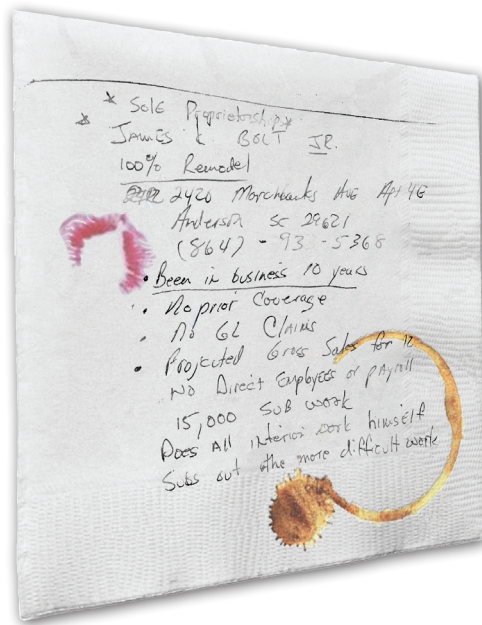 * Sole Proprietorship *
* James K. Bolt JR.
100% Remodel
2420 Marchbanks Ave Apt 4G
Anderson SC 29621
(864) - 93 -5368
• Been in business 10 years
• No prior Coverage
• No GL Claims
• Projected Gross Sales for 12
No Direct Employees or payroll
15,000 Sub work
Does All interior work himself
Subs out the more difficult work